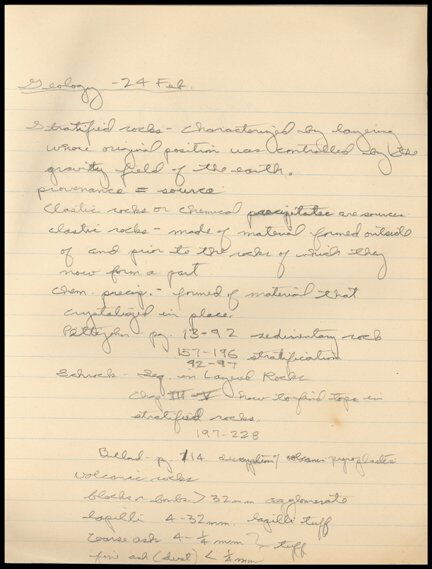 Geology - 24 Feb.
Stratified rocks - characterized by layering
whose original position was controlled by the
gravity field of the earth.
provenance = source
Clastic rocks or chemical precipitates are sources
clastic rocks - made of material formed outside
of and prior to the rocks of which they
now form a part
Chem. precip. - formed of material that
crystalized in place.
Pettijohn - pg 13-92 sedimentary rock
157-196 stratification
92-97
Schrock - Seq. in Layered Rocks
Chap III - V how to find tops in
stratified rocks.
197-228
pg 114 volcanic pyroclastics
Volcanic rocks
blocks or bombs > 32mm agglomerate
lapilli 4-32mm. lapilli tuff
coarse ash 4-¼ mm } tuff
fine ash (dust) < ¼ mm